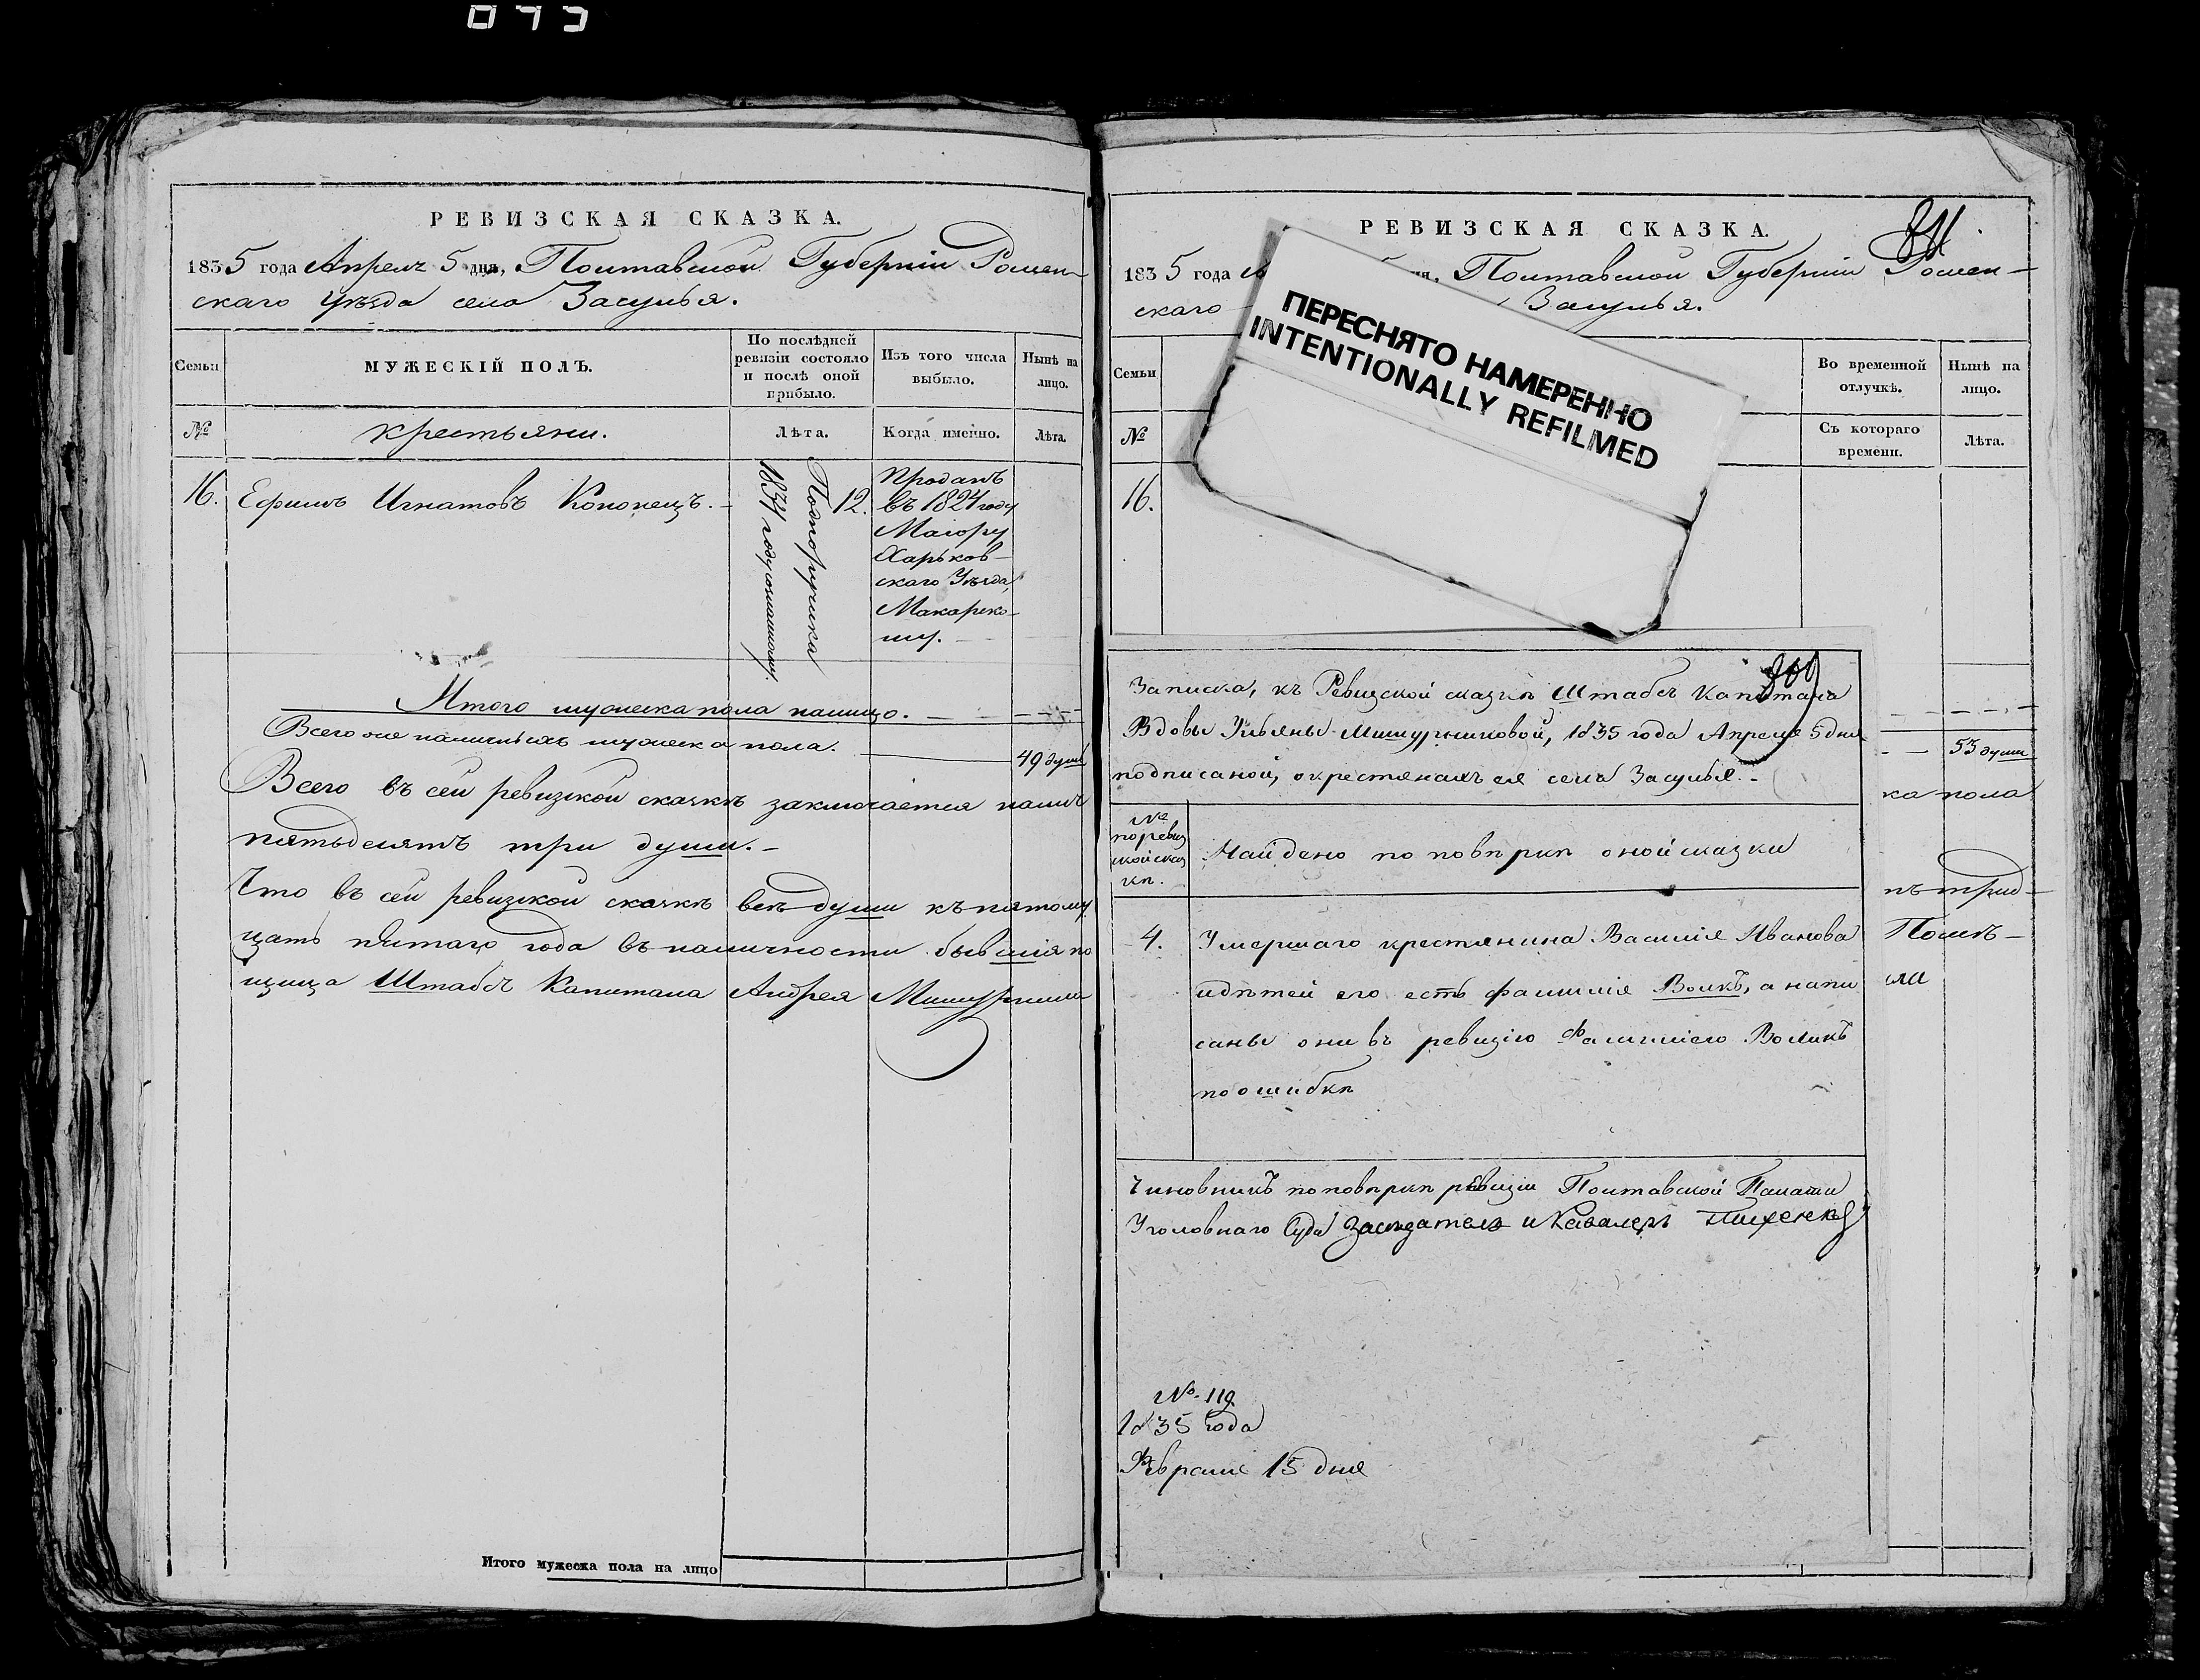 РЕВИЗСКАЯ СКАЗКА.
1835 года Апреля 5 дня, Полтавской Губерніи Ромен-
скаго уѣзда села Засулья.
Семьи
МУЖЕСКІЙ ПОЛЪ.
По послѣдней
ревизіи состояло
и послѣ оной
прибыло.
Изъ того числа
выбыло.
Нынѣ на
лицо.
№
крестьяни.
Лѣта.
Когда именно.
Лѣта.
16.
Ефимъ Игнатовъ Кононецъ.
12.
Проданъ
въ 1824 году
Маіору
Харьков-
скаго Уѣзда,
Макареко-
му.
Подпоручика
1834 году
Итого мужеска пола налицо.
Всего же наличныхъ мужеска пола.
49 душъ
Всего въ сей ревизкой сказкѣ заключается налич
пятьдесятъ три души.
Что въ сей ревизкой сказкѣ всѣ души къ пятому
цать пятаго года въ наличности бывшія по
щица Штабсъ Капитана Андрея
Итого мужеска пола на лицо
РЕВИЗСКАЯ СКАЗКА.
1835 года Полтавской Губерніи Ромен-
скаго Засулья.
ПЕРЕСНЯТО НАМЕРЕННО
INTENTIONALLY REFILMED
Семьи
Во временной
отлучкѣ.
Нынѣ на
лицо.
№
Съ котораго
времени.
Лѣта.
16.
53 души
ка пола
нъ трид-
Помѣ-
Записка, къ Ревизской сказкѣ Штабсъ Капитана
Вдовы Ульяны Мишурниковой, 1835 года Апреля 5 дня
подписаной, о крестянахъ ея села Засулья.
№
по ревиз
ской сказ
кѣ.
Найдено по повѣркѣ оной сказки
4.
Умершаго крестянина Василія Иванова
и дѣтей его есть фамилія Волкъ, а напи
саны они въ ревизію Фамиліею Воликъ
по ошибкѣ
Чиновникъ по повѣркѣ ревизіи Полтавской Палаты
Уголовнаго Суда Засѣдатель и Кавалеръ
№ 119.
1835 года
Февраля 15 дня